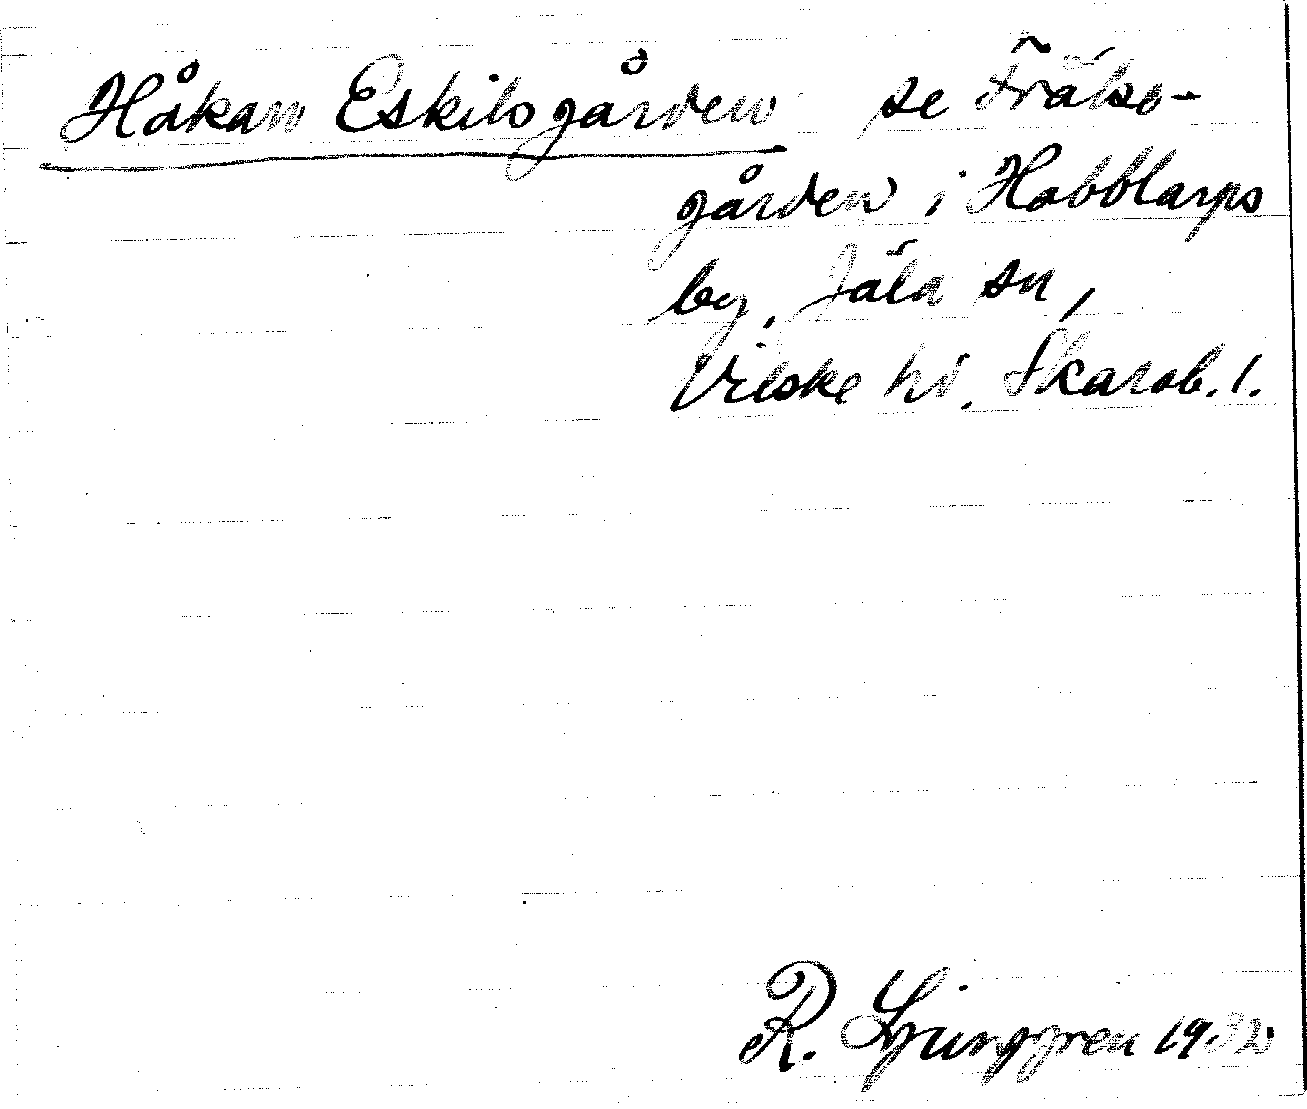 Håkan Eskilsgården se Frälse-
gården i Habblarps
by, Jäla sn,
Vilske hd. Skarab. l.
R. Ljunggren 1932